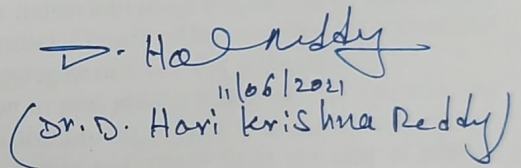 D. Ha Reddy
11/06/2021
(Dr. D. Hari krishna Reddy)